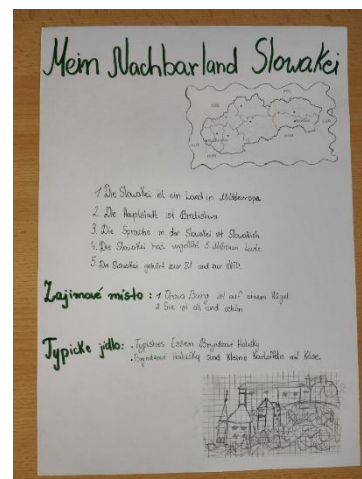 Mein Nachbarland Slowakei
1 Die Slowakei ist ein Land in Mitteleuropa
2. Die Hauptstadt ist Bratislava
3. Die Sprache in der Slowakei ist Slowakisch
4. Die Slowakei hat ungefähr 5 Millionen Leute
5. Die Slowakei gehört zur EU und zur NATO.
Zajímavé místo: 1 Orava Burg ist auf einem Hügel
2 Sie ist alt und schön
Typické jídlo: • Typisches Essen Bryndzové Halušky
• Bryndzové Halušky sind kleine Kartoffeln mit Käse.